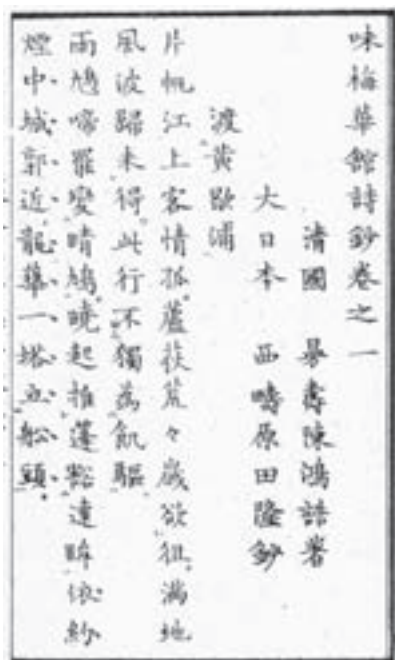 味梅華館詩鈔卷之一
清國 曼壽陳鴻誥著
大日本 西疇原田隆鈔
渡黃歇浦
片帆江上客情孤蘆荻荒々歲欲徂滿地
風波歸未得此行不獨為飢驅
雨鳩啼罷變晴鳩曉起推蓬豁遠眸依約
煙中城郭近龍華一塔立船頭